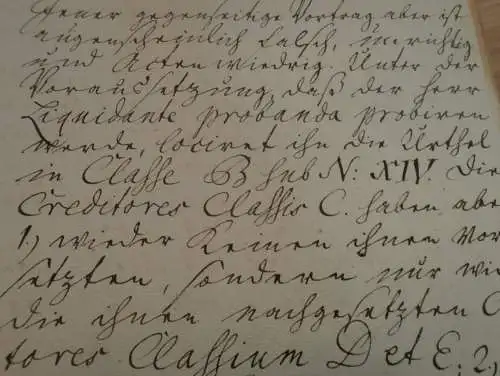 Jener gegenseitige Vortrag aber ist
augenscheinlich falsch, unrichtig
und Acten wiedrig. Unter der
Voraussetzung, daß der Herr
Liquidante probanda probiren
werde, lociret ihn die Urthel
in Classe B sub N: XIV. Die
Creditores Classis C. haben aber
1.) wieder Keinen ihnen Vor
setzten, sondern nur wie
die ihnen nachgesetzten C
tores Classium D et E; 2.)